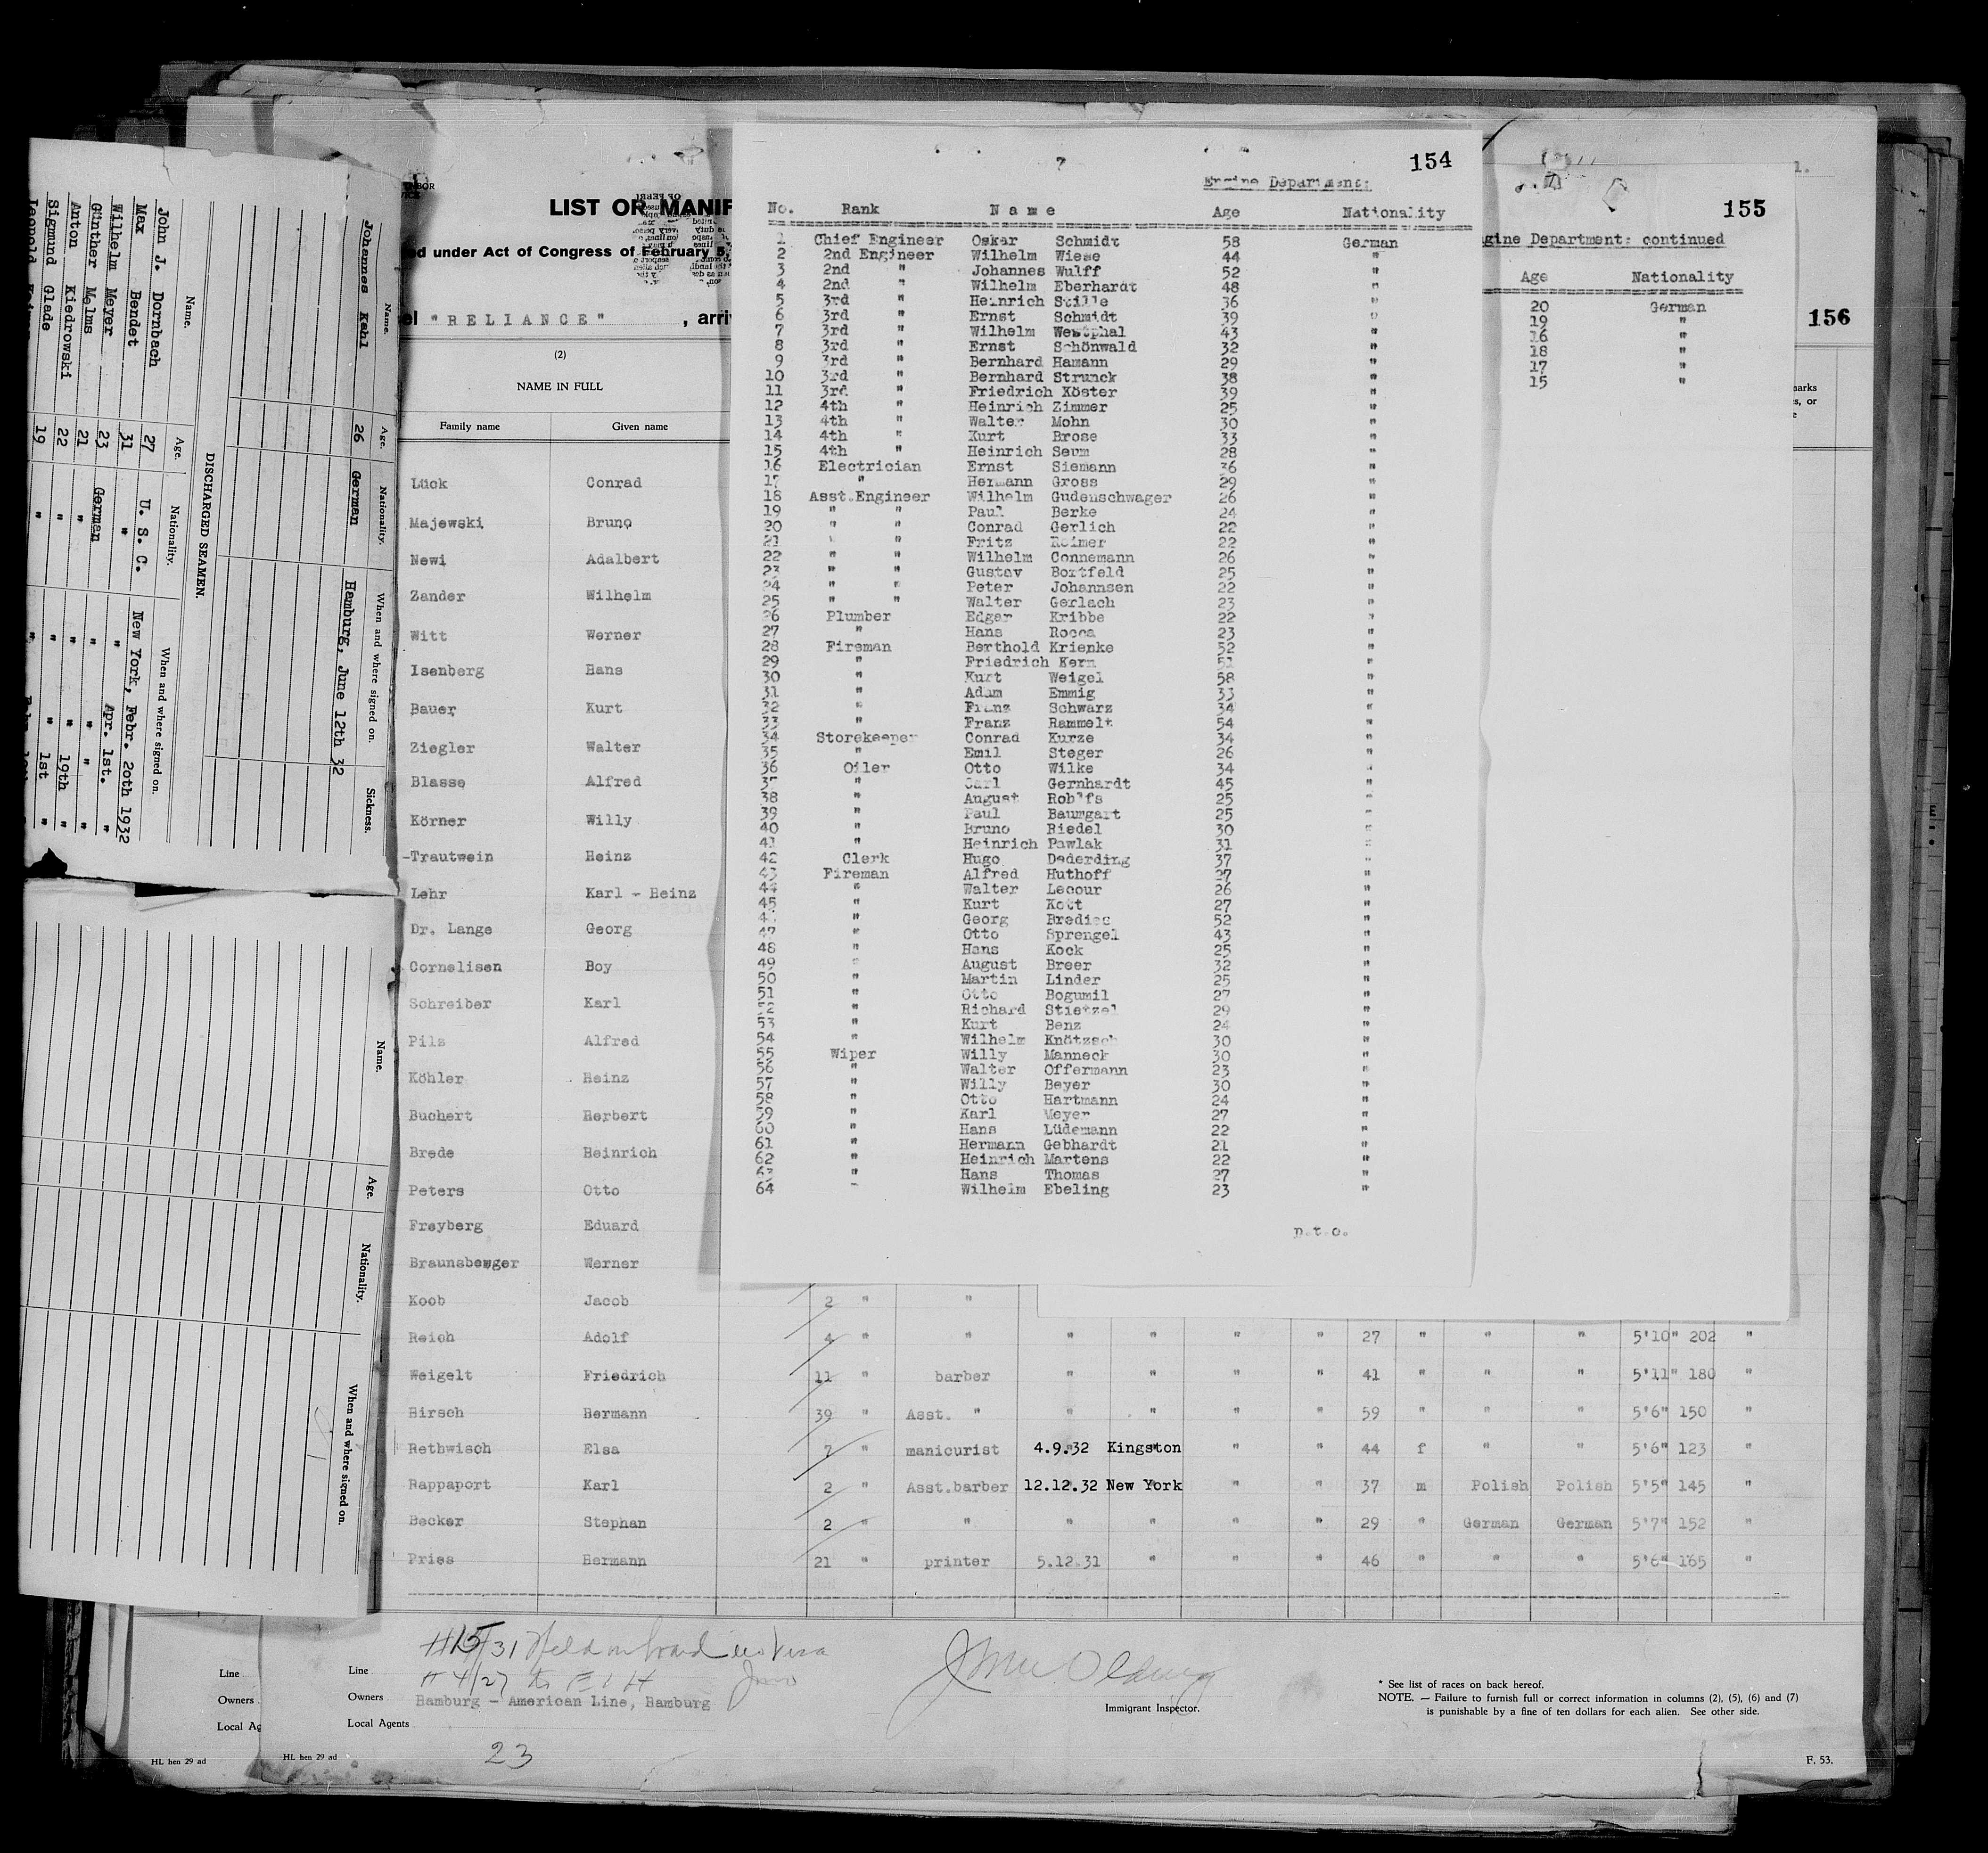 154
Engine Department:
No. Rank Name Age Nationality
1 Chief Engineer Oskar Schmidt 58 German
2 2nd Engineer Wilhelm Wiese 44 "
3 2nd " Johannes Wulff 52 "
4 2nd " Wilhelm Eberhardt 48 "
5 3rd " Heinrich Stille 36 "
6 3rd " Ernst Schmidt 39 "
7 3rd " Wilhelm Westphal 43 "
8 3rd " Ernst Schönwald 32 "
9 3rd " Bernhard Hamann 29 "
10 3rd " Bernhard Strunck 38 "
11 3rd " Friedrich Köster 39 "
12 4th " Heinrich Zimmer 25 "
13 4th " Walter Mohn 30 "
14 4th " Kurt Brose 33 "
15 4th " Heinrich Seum 28 "
16 Electrician Ernst Siemann 36 "
17 " Hermann Gross 29 "
18 Asst.Engineer Wilhelm Gudenschwager 26 "
19 " " Paul Berke 24 "
20 " " Conrad Gerlich 22 "
21 " " Fritz Reimer 22 "
22 " " Wilhelm Connemann 26 "
23 " " Gustav Bortfeld 25 "
24 " " Peter Johannsen 22 "
25 " " Walter Gerlach 23 "
26 Plumber Edgar Kribbe 22 "
27 " Hans Rocca 23 "
28 Fireman Berthold Krienke 52 "
29 " Friedrich Kern 51 "
30 " Kurt Weigel 58 "
31 " Adam Emmig 33 "
32 " Franz Schwarz 34 "
33 " Franz Rammelt 54 "
34 Storekeeper Conrad Kurze 34 "
35 " Emil Steger 26 "
36 Oiler Otto Wilke 34 "
37 " Carl Gernhardt 45 "
38 " August Rohlfs 25 "
39 " Paul Baumgart 25 "
40 " Bruno Riedel 30 "
41 " Heinrich Pawlak 31 "
42 Clerk Hugo Dederding 37 "
43 Fireman Alfred Huthoff 27 "
44 " Walter Lecour 26 "
45 " Kurt Kott 27 "
" Georg 52 "
47 " Otto Sprengel 43 "
48 " Hans Kock 25 "
49 " August Breer 32 "
50 " Martin Linder 25 "
51 " Otto Bogumil 27 "
52 " Richard Stietzel 29 "
53 " Kurt Benz 24 "
54 " Wilhelm Knötzsch 30 "
55 Wiper Willy Manneck 30 "
56 " Walter Offermann 23 "
57 " Willy Beyer 30 "
58 " Otto Hartmann 24 "
59 " Karl Meyer 27 "
60 " Hans Lüdemann 22 "
61 " Hermann Gebhardt 21 "
62 " Heinrich Martens 22 "
63 " Hans Thomas 27 "
64 " Wilhelm Ebeling 23 "
p.t.o.
155
gine Department: continued
Age Nationality
20 German
19 "
16 "
18 "
17 "
15 "
1.
156
LIST OR MANIF
ed under Act of Congress of February 5,
el "RELIANCE" , arri
(2)
NAME IN FULL
Family name Given name
Lück Conrad
Majewski Bruno
Newi Adalbert
Zander Wilhelm
Witt Werner
Isenberg Hans
Bauer Kurt
Ziegler Walter
Blasse Alfred
Körner Willy
-Trautwein Heinz
Lehr Karl - Heinz
Dr. Lange Georg
Cornelisen Boy
Schreiber Karl
Pilz Alfred
Köhler Heinz
Buchert Herbert
Brede Heinrich
Peters Otto
Freyberg Eduard
Braunsberger Werner
Koob Jacob 2 " "
Reich Adolf 4 " " " " " " 27 " " " 5'10" 202 "
Weigelt Friedrich 11 " barber " " " " 41 " " " 5'11" 180 "
Hirsch Hermann 39 " Asst. " " " " " 59 " " " 5'6" 150 "
Rethwisch Elsa 7 " manicurist 4.9.32 Kingston " " 44 f " " 5'6" 123 "
Rappaport Karl 2 " Asst.barber 12.12.32 New York " " 37 m Polish Polish 5'5" 145 "
Becker Stephan 2 " " " " " " 29 " German German 5'7" 152 "
Pries Hermann 21 " printer 5.12.31 " " " 46 " " " 5'6" 165 "
Held on board no Visa
Line
Owners Hamburg - American Line, Hamburg
Local Agents
23
HL hen 29 ad
Immigrant Inspector.
* See list of races on back hereof.
NOTE. — Failure to furnish full or correct information in columns (2), (5), (6) and (7)
is punishable by a fine of ten dollars for each alien. See other side.
F. 53.
Line
Owners
Local Ag
HL hen 29 ad
Name. Age. Nationality. When and where signed on. Sickness.
Johannes Kahl 26 German Hamburg, June 12th 32
DISCHARGED SEAMEN.
Name. Age. Nationality. When and where signed on.
John J. Dornbach 27 U. S. C. New York, Febr. 20th 1932
Max Bendet 31 " " Apr. 1st. "
Wilhelm Meyer 23 German " " "
Günther Melms 21 " " " "
Anton Kiedrowski 22 " " " 19th "
Sigmund Glade 19 " " " 1st "
Leopold
Name. Age. Nationality. When and where signed on.